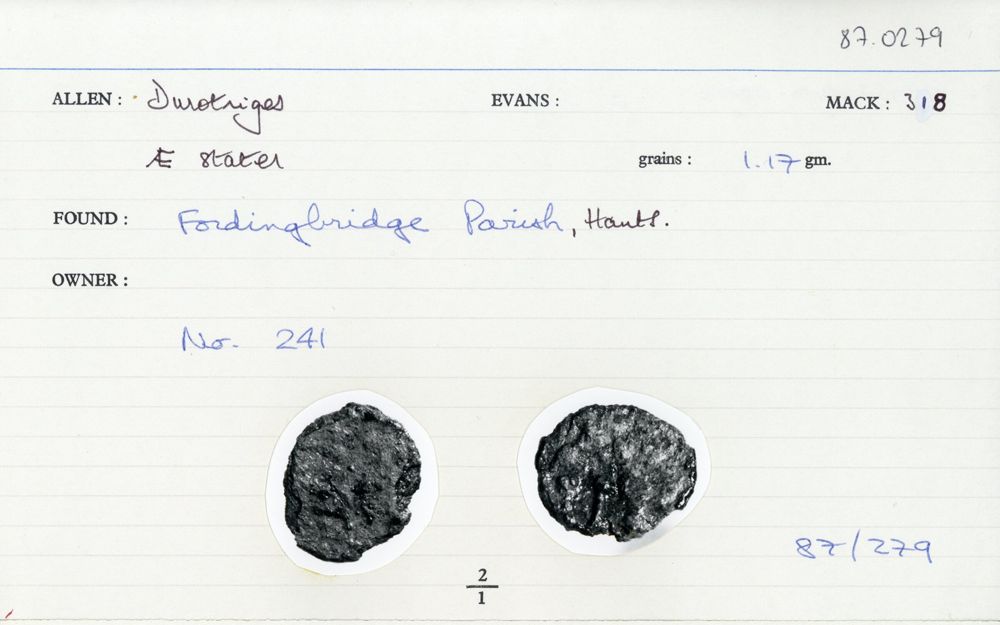 87.0279
ALLEN : Durotriges EVANS : MACK : 318
Æ stater grains : 1.17 gm.
FOUND : Fordingbridge Parish, Hants.
OWNER :
No. 241
87/279
2
1